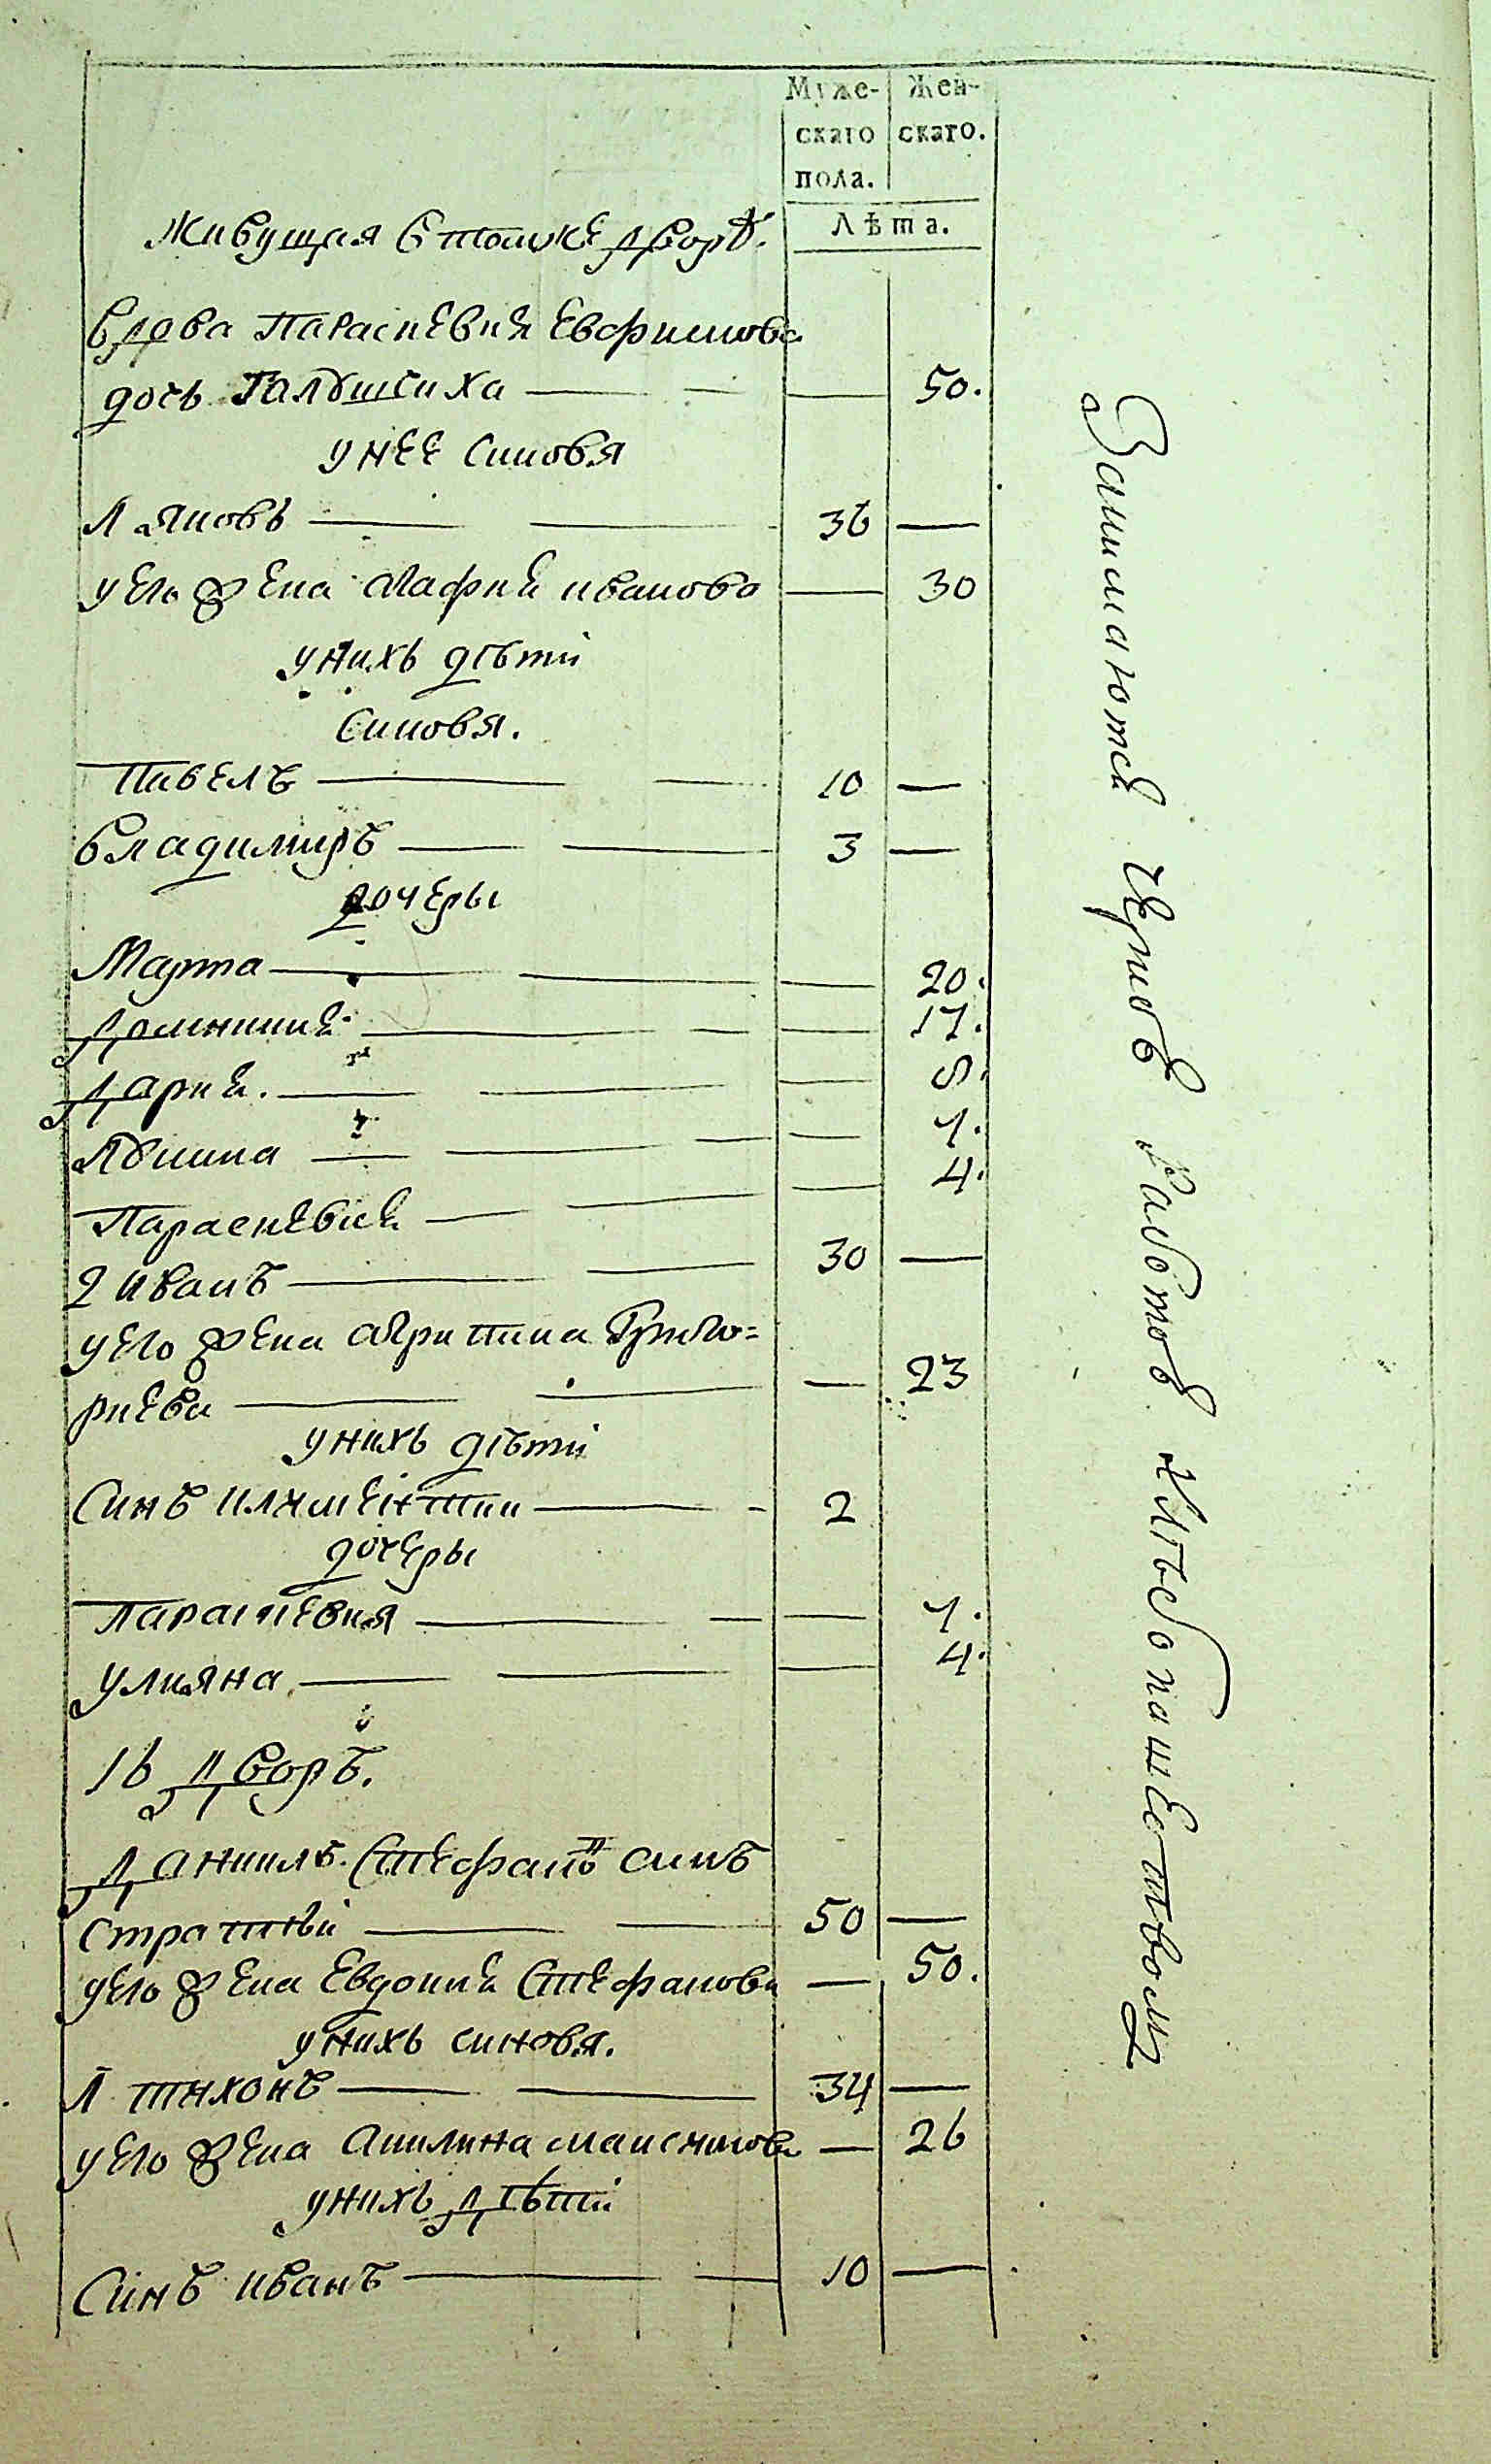 Муже-
скаго
пола.
Жен-
скаго.
Лѣта.
живущая втомже дворѣ.
вдова Параскевия Евфимова
дочь Галушчиха — — 50.
унее синовя
1 яковъ — 36 —
уего жена агафия иванова — 30
унихъ дѣти
синовя.
Павелъ — 10 —
владимиръ — 3 —
дочеры
Марта — — 20.
Домникия — — 17.
Дария. — — 8.
Якилина — — 7.
Параскевия — — 4.
2 иванъ — 30 —
уего жена агрипина Григо=
риева — — 23
унихъ дѣти
синъ климентии — 2
дочеры
Параскевия — — 7.
улияна — — 4.
16 дворъ.
Даниилъ. Стефановъ синъ
страшный — 50 —
уего жена Евдокия Стефанова — 50.
унихъ синовя.
1 тихонъ — 34 —
уего жена Акилина максимова — 26
унихъ дѣти
синъ иванъ — 10 —
Занимаютсѧ чернов работов хлѣбопашеством